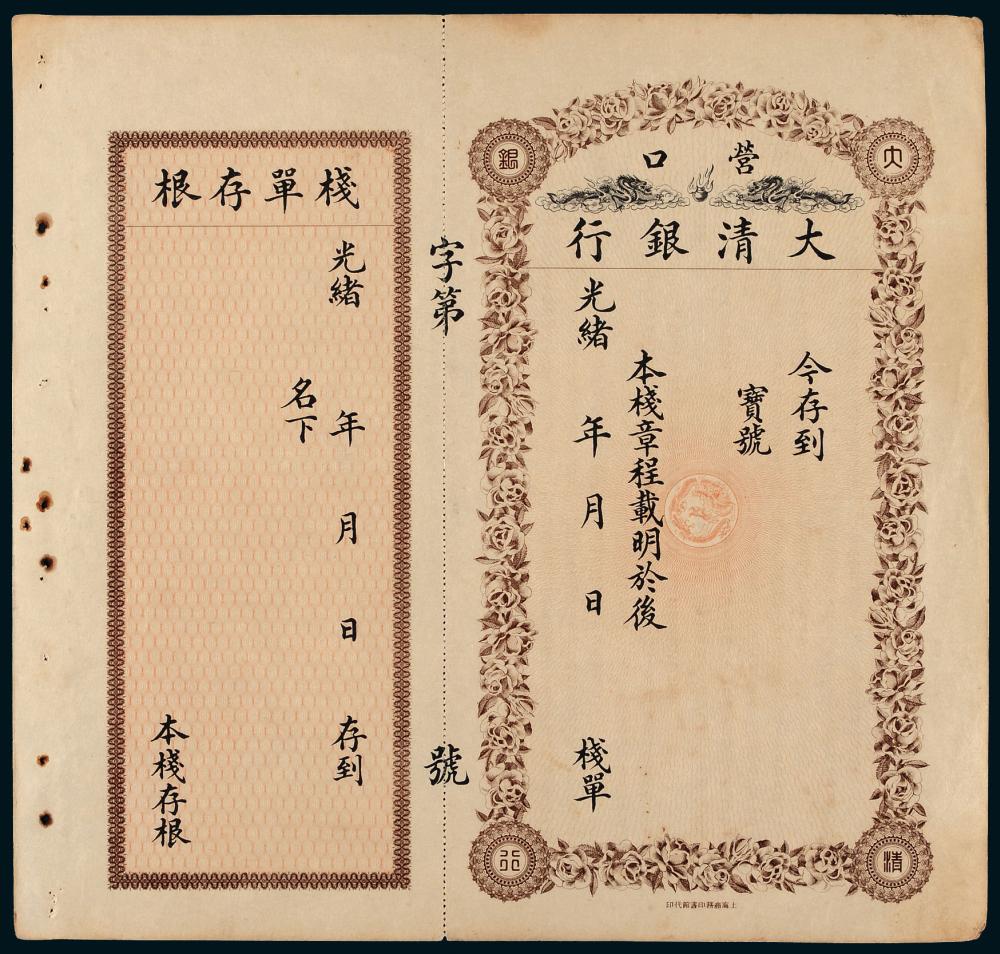 營口
大清銀行
大
清
銀
行
今存到
寶號
本棧章程載明於後
光緒 年 月 日 棧單
上海商務印書館代印
字第 號
棧單存根
光緒 年 月 日 存到
名下
本棧存根